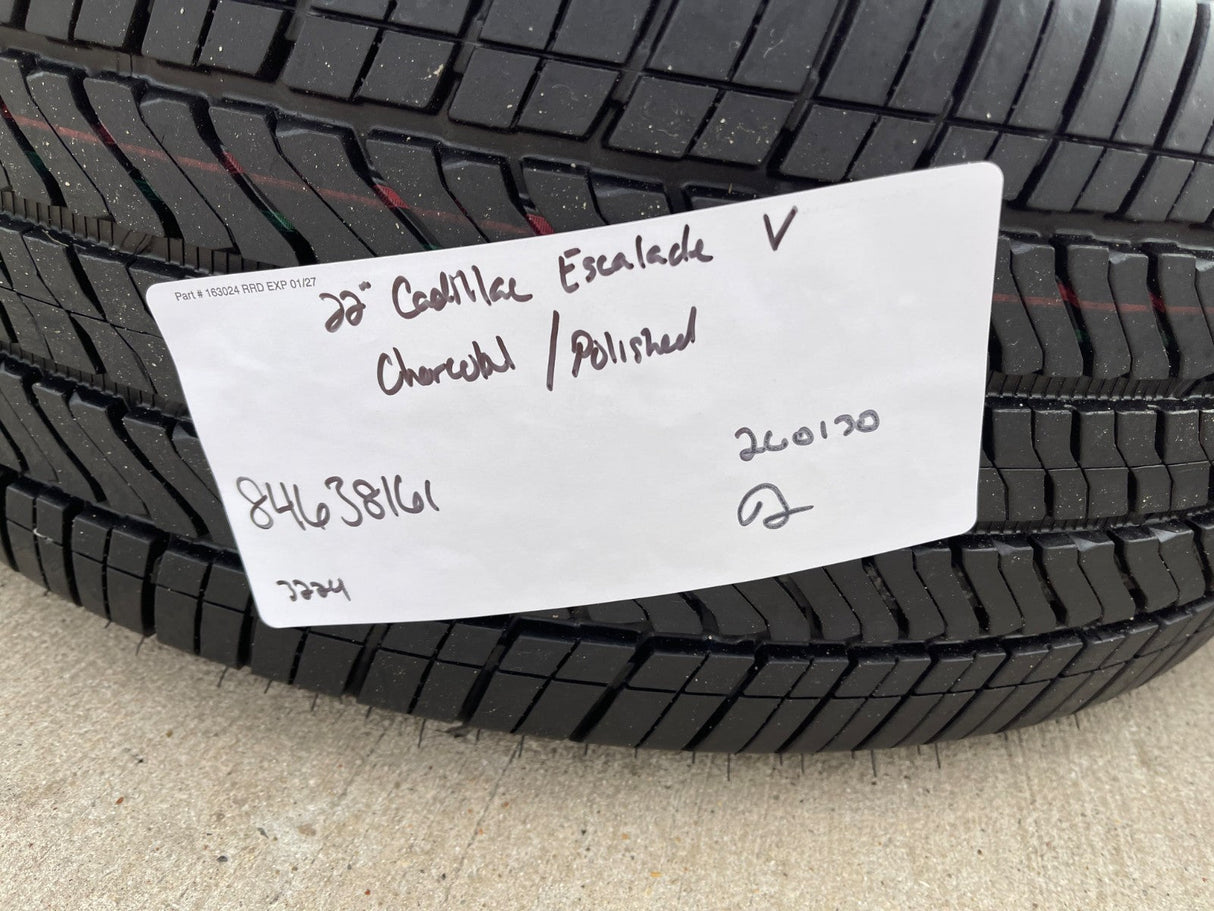 Part # 163024 RRD EXP 01/27
22" Cadillac Escalade V
Charcoal / Polished
260130
84638161
2
3224